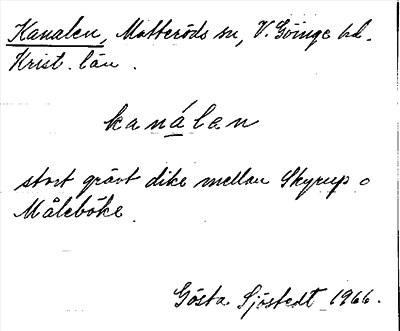 Kanalen, Matteröds sn, V. Göinge hd.
Krist. län.
kanálen
stort grävt dike mellan Skyrup o
Måleböke
Gösta Sjöstedt 1966.